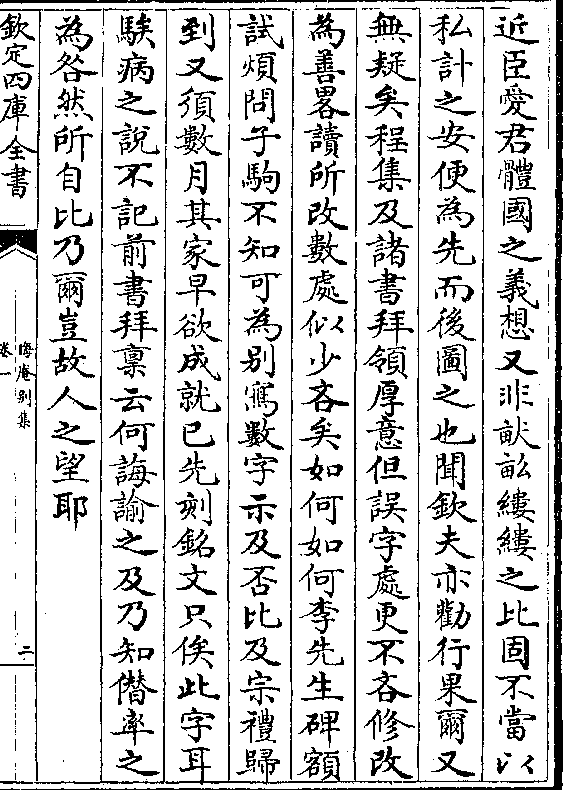 近臣愛君體國之義想又非畎畝縷縷之比固不當以
私計之安便為先而後圖之也聞欽夫亦勸行果爾又
無疑矣程集及諸書拜領厚意但誤字處更不吝修改
為善畧讀所改數處似少吝矣如何如何李先生碑額
試煩問子駒不知可為别寫數字示及否比及宗禮歸
到又須數月其家早欲成就已先刻銘文只俟此字耳
騃病之說不記前書拜稟云何誨諭之及乃知僭率之
為咎然所自比乃爾豈故人之望耶
欽定四庫全書
晦庵别集
卷一
二